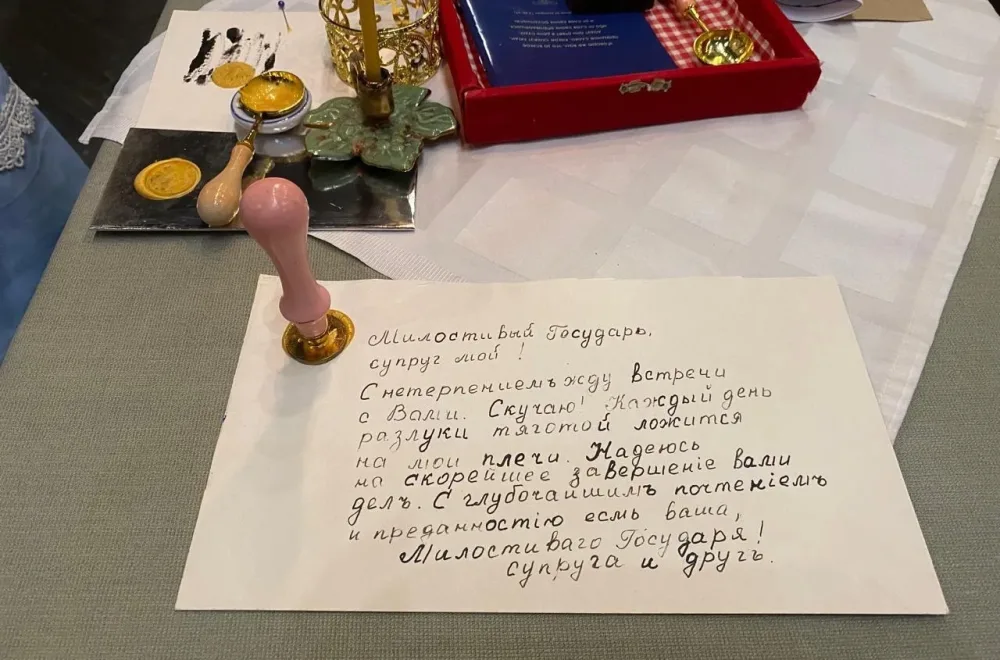 Милостивый Государь,
супруг мой!
С нетерпениемъ жду встречи
с Вами. Скучаю! Каждый день
разлуки тяготой ложится
на мои плечи. Надеюсь
на скорейшее завершенiе вами
делъ. С глубочайшимъ почтенiемъ
и преданностiю есмь ваша,
Милостиваго Государя!
супруга и другъ.